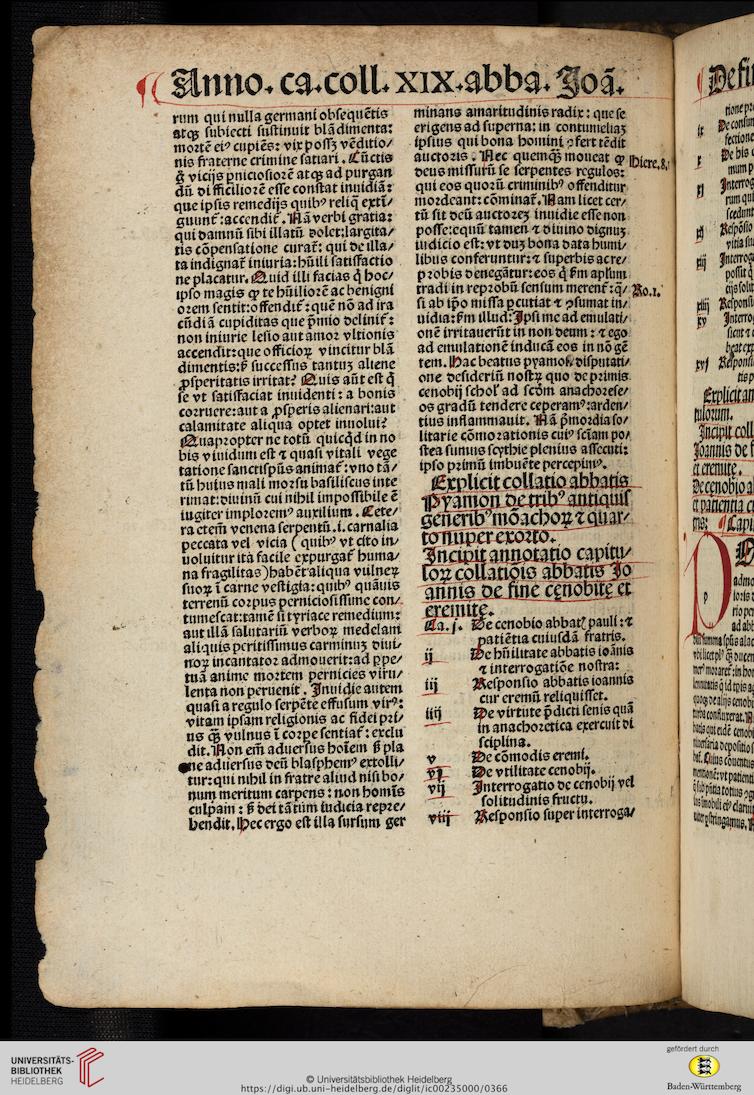 Anno. ca. coll. XIX. abba. Joā.
rum qui nulla germani obsequētis
atqꝫ subiecti sustinuit blādimenta:
mortē eiꝰ cupiēs: vix possꝫ vēditio/
nis fraterne crimine satiari. Cūctis
g̊ vicijs pniciosiorē atqꝫ ad purgan
dū difficiliorē esse constat inuidiā:
que ipsis remedijs quibꝰ reliq̄ extī/
guunt᷑: accendit᷑. Nā verbi gratia:
qui damnū sibi illatū dolet: largita/
tis cōpensatione curat᷑: qui de illa/
ta indignat᷑ iniuria: hūili satisfactio
ne placatur. Quid illi facias q̇ hoc/
ipso magis ꝙ te hūiliorē ac benigni
orem sentit: offendit᷑: quē nō ad ira
cūdiā cupiditas que p̄mio delinit᷑:
non iniurie lesio aut amor vltionis
accendit: que officioꝝ vincitur blā
dimentis: ß successus tantuꝫ aliene
ꝓsperitatis irritat? Quis aūt est q̇
se vt satisfaciat inuidenti: a bonis
corruere: aut a ꝓsperis alienari: aut
calamitate aliqua optet inuolui?
Quapropter ne totū quicq̇d in no
bis viuidum est ⁊ quasi vitali vege
tatione sanctispūs animat᷑: vno tā/
tū huius mali morsu basiliscus inte
rimat: diuinū cui nihil impossibile ē
iugiter imploremꝰ auxilium. Cete/
ra etem̄ venena serpentū .i. carnalia
peccata vel vicia (quibꝰ vt cito in/
uoluitur ita facile expurgat᷑ huma/
na fragilitas) habēt aliqua vulneꝝ
suoꝝ ī carne vestigia: quibꝰ quāuis
terrenū corpus perniciosissime con/
tumescat: tamē si tyriace remedium:
aut illā salutariū verboꝝ medelam
aliquis peritissimus carminuꝫ diui/
noꝝ incantator admouerit: ad ꝑpe/
tuā anime mortem pernicies viru/
lenta non peruenit. Inuidie autem
quasi a regulo serpēte effusum virꝰ:
vitam ipsam religionis ac fidei pri/
us q̄ꝫ vulnus ī corpe sentiat᷑: exclu
dit. Non em̄ aduersus hoīem ß pla
ne aduersus deū blasphemꝰ extolli/
tur: qui nihil in fratre aliud nisi bo/
num meritum carpens: non homīs
culpam: ß dei tātum iudicia repre/
hendit. Hec ergo est illa sursum ger
minans amaritudinis radix: que se
erigens ad superna: in contumeliaꝫ
ipsius qui bona homini ꝯfert tēdit
auctoris. Nec quemq̄ꝫ moueat ꝙ
deus missurū se serpentes regulos:
Hiere.8.
qui eos quorū criminibꝰ offenditur
mordeant: cōminat᷑. Nam licet cer/
tū sit deū auctoreꝫ inuidie esse non
posse: equū tamen ⁊ diuino dignuꝫ
iudicio est: vt duꝫ bona data humi/
libus conferuntur: ⁊ superbis ac re/
probis denegātur: eos q̇ ẜm aplum
tradi in reprobū sensum merent᷑: q̄/
Ro.1.
si ab ipo missa ꝑcutiat ⁊ ꝯsumat in/
uidia: ẜm illud: Ipsi me ad emulati/
onē irritauerūt in non deum: ⁊ ego
ad emulationē inducā eos in nō gē
tem. Hac beatus pyamon disputati/
one desideriū nostrꝫ quo de primis
cenobij schol' ad scōm anachorese/
os gradū tendere ceperamꝰ: arden/
tius inflammauit. Nā p̄mordia so/
litarie cōmorationis cuiꝰ sciam po/
stea sumus scythie plenius assecuti:
ipso primū imbuēte percepimꝰ.
Explicit collatio abbatis
Pyamon de tribꝰ antiquis
generibꝰ mōachoꝝ ⁊ quar/
to nuper exorto.
Incipit annotatio capitu/
loꝝ collatiōis abbatis Jo
annis de fine cenobitę et
eremitę.
Ca. j. De cenobio abbat̄ pauli: ⁊
patiētia cuiusdā fratris.
ij De hūilitate abbatis ioānis
⁊ interrogatiōe nostra:
iij Responsio abbatis ioannis
cur eremū reliquisset.
iiij De virtute p̄dicti senis quā
in anachoretica exercuit di
sciplina.
v De cōmodis eremi.
vj De vtilitate cenobij.
vij Interrogatio de cenobij vel
solitudinis fructu.
viij Responsio super interroga/
De fin
ix De consum
x De his
xj Interrog
xij Respōsio
xiij Interrog
xiiij Responsi
xv Interro
xvj Responsi
Explicit an
tulorum.
Incipit coll
Joannis de f
et eremitę.
De cenobio a
et patientia c
UNIVERSITÄTS-
BIBLIOTHEK
HEIDELBERG
© Universitätsbibliothek Heidelberg
https://digi.ub.uni-heidelberg.de/diglit/ic00235000/0366
gefördert durch
Baden-Württemberg